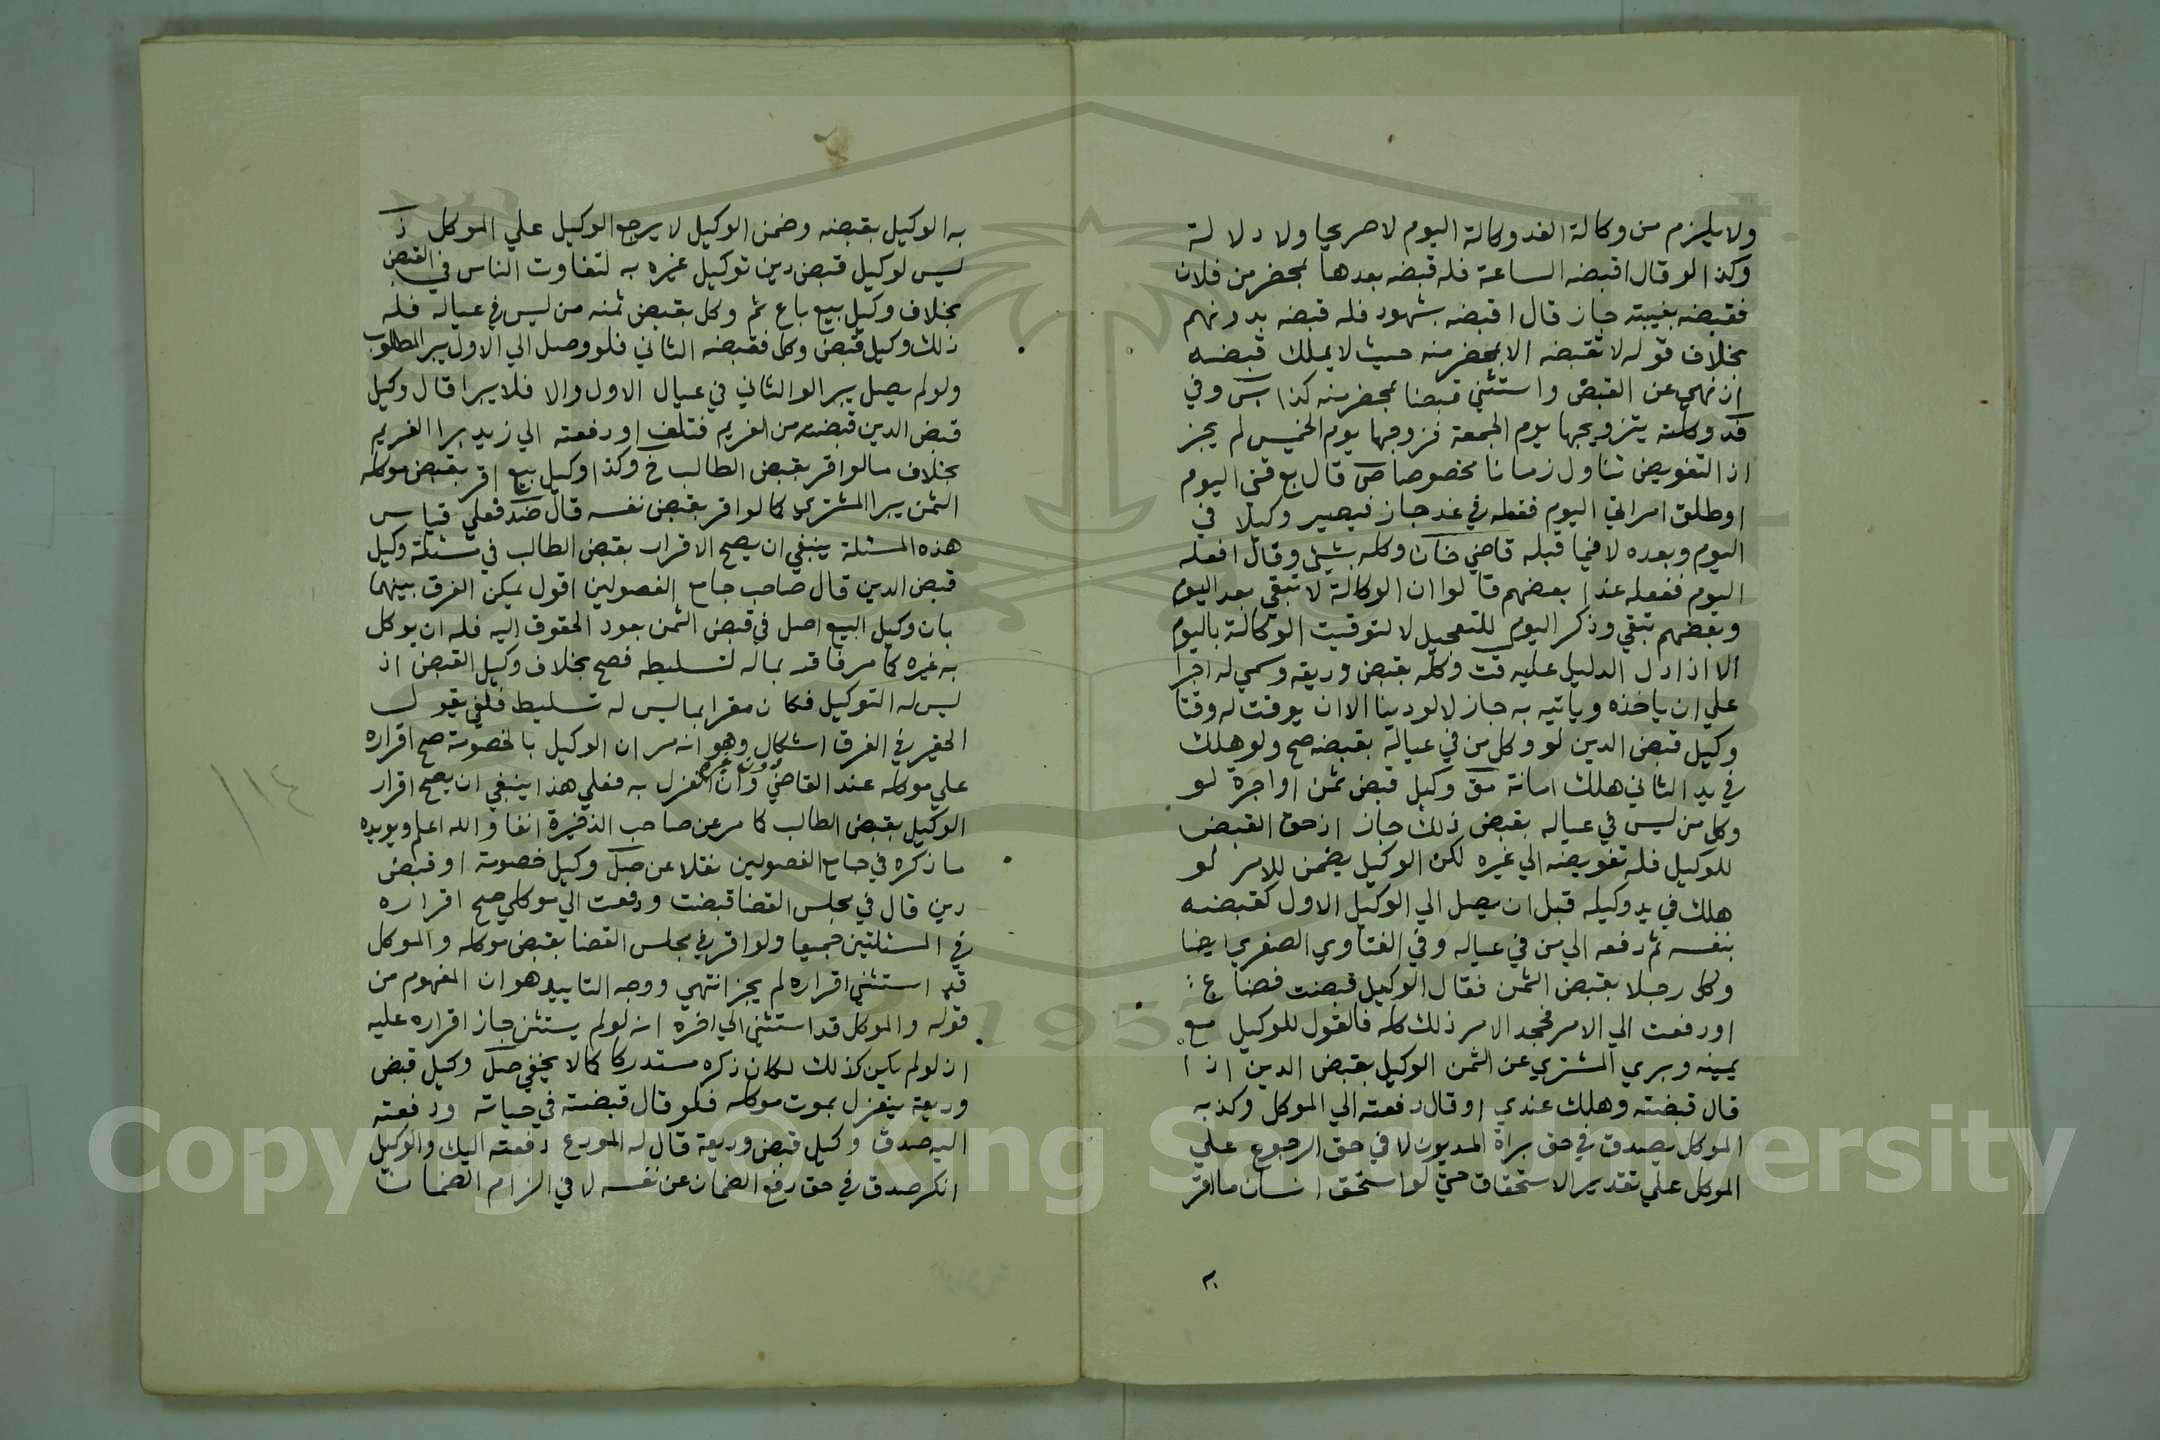 ولا يلزم من وكالة الغد وكالة اليوم لا صريحا ولا دلالة
وكذا لو قال اقبضه الساعة فله قبضه بعدها بمحضر من فلان
فقبضه بغيبته جاز قال اقبضه بشهود فله قبضه بدونهم
بخلاف قوله لا تقبضه الا بمحضر منه حيث لا يملك قبضه
اذ نهي عن القبض واستثني قبضا بمحضر منه كذا وفي
وكلته يتزويجها يوم الجمعة فزوجها يوم الخميس لم يجز
اذ التفويض تناول زمانا مخصوصا قال بع قني اليوم
او طلق امراتي اليوم ففعله في غد جاز فيصير وكيلا في
اليوم وبعده لا فيما قبله قاضي خان وكله بشيئ وقال افعله
اليوم ففعله غدا بعضهم قالوا ان الوكالة لا تبقي بعد اليوم
وبعضهم تبقي وذكر اليوم للتعجيل لا لتوقيت الوكالة باليوم
الا اذا دل الدليل عليه وكله بقبض وديعه وسمي له اجرا
علي ان ياخذه وياتيه به جاز لا لو دينا الا ان يوقت له وقتا
وكيل قبض الدين لو وكل من في عياله بقبضه صح ولو هلك
في يد الثاني هلك امانة وكيل قبض ثمن او اجرة لو
وكل من ليس في عياله بقبض ذلك جاز اذ حق القبض
للوكيل فله تفويضه الي غيره لكن الوكيل يضمن للامر لو
هلك في يد وكيله قبل ان يصل الي الوكيل الاول كقبضه
بنفسه ثم دفعه الي من في عياله وفي الفتاوي الصغري ايضا
وكل رجلا بقبض الثمن فقال الوكيل قبضت فضاع
او دفعت الي الامر فجحد الامر ذلك كله فالقول للوكيل مع
يمينه وبري المشتري عن الثمن الوكيل بقبض الدين اذا
قال قبضته وهلك عندي او قال دفعته الي الموكل وكذبه
الموكل يصدق في حق براة المديون لا في حق الرجوع علي
الموكل علي تقدير الاستحقاق حتي لو استحق انسان ما اقر
به الوكيل بقبضه وضمن الوكيل لا يرجع الوكيل علي الموكل
ليس لوكيل قبض دين توكيل غيره به لتفاوت الناس في القبض
بخلاف وكيل بيع باع ثم وكل بقبض ثمنه من ليس في عياله فله
ذلك وكيل قبض وكل فقبضه الثاني فلو وصل الي الاول يبرا المطلوب
ولو لم يصل يبرا لو الثاني في عيال الاول والا فلا يبرا قال وكيل
قبض الدين قبضته من الغريم فتلف او دفعته الي زيد يبرا الغريم
بخلاف ما لو اقر بقبض الطالب وكذا وكيل بيع اقر بقبض موكله
الثمن يبرا المشتري كما لو اقر بقبض نفسه قال فعلي قياس
هذه المسئلة ينبغي ان يصح الاقرار بقبض الطالب في مسئلة وكيل
قبض الدين قال صاحب جامع الفصولين اقول يمكن الفرق بينهما
بان وكيل البيع اصل في قبض الثمن بعود الحقوق اليه فله ان يوكل
به غيره كما مر فاقر بماله تسليطه فصح بخلاف وكيل القبض اذ
ليس له التوكيل فكان مقرا بما ليس له تسليط فلغي يقول
الحقير في الفرق اشكال وهو انه مر ان الوكيل بالخصومة صح اقراره
علي موكله عند القاضي دون غيره وان انعزل به فعلي هذا ينبغي ان يصح اقرار
الوكيل بقبض الطالب كما مر عن صاحب الذخيرة انفا والله اعلم ويويده
ما ذكره في جامع الفصولين نقلا عن وكيل خصومة او قبض
دين قال في مجلس القضا قبضت ودفعت الي موكلي صح اقراره
في المسئلتين جميعا ولو اقر في مجلس القضا بقبض موكله والموكل
قد استثني اقراره لم يجز انتهي ووجه التاييد هو ان المفهوم من
قوله والموكل قد استثني الي اخره انه لو لم يستثن جاز اقراره عليه
اذ لو لم يكن كذلك لكان ذكره مستدركا كما لا يخفي وكيل قبض
وديعة ينعزل بموت موكله فلو قال قبضته في حياته ودفعته
اليه صدق وكيل قبض وديعة قال له المودع دفعته اليك والوكيل
انكر صدق في حق دفع الضمان عن نفسه لا في الزام الضمان
١١٤
Copyright © King Saud University
1957